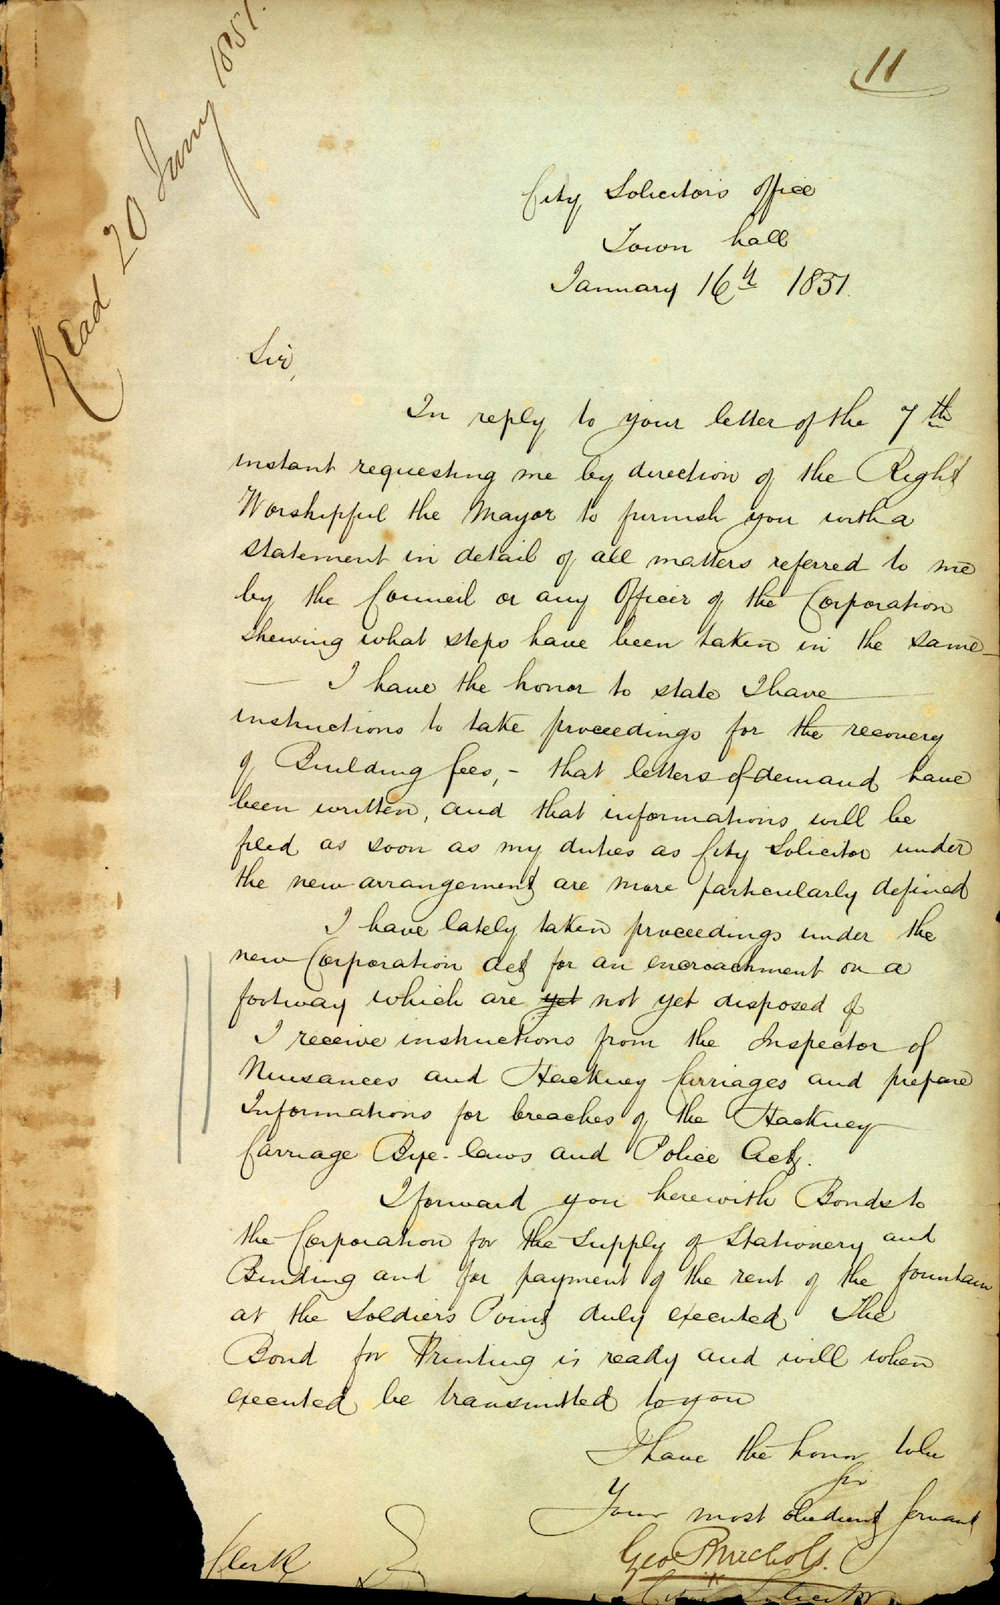 11
Read 20 Jany 1851.
City Solicitors Office
Town hall
January 16th 1851.
Sir,
In reply to your letter of the 7th
instant requesting me by direction of the Right
Worshipful the Mayor to furnish you with a
statement in detail of all matters referred to me
by the Council or any Officer of the Corporation
shewing what steps have been taken in the same—
— I have the honor to state I have —
instructions to take proceedings for the recovery
of Building fees, – that letters of demand have
been written, and that informations will be
filed as soon as my duties as City Solicitor under
the new arrangements are more particularly defined
I have lately taken proceedings under the
new Corporation Act for an encroachment on a
footway which are yet not yet disposed of
I receive instructions from the Inspector of
Nuisances and Hackney Carriages and prepare
Informations for breaches of the Hackney
Carriage Bye-laws and Police Acts.
I forward you herewith Bonds to
the Corporation for the Supply of Stationery and
Binding and for payment of the rent of the fountain
at the Soldiers Point duly executed The
Bond for Printing is ready and will when
executed be transmitted to you
I have the honor to be
Sir
Your most obedient Servant
Geo R Nichols.
City Solicitor
Clerk